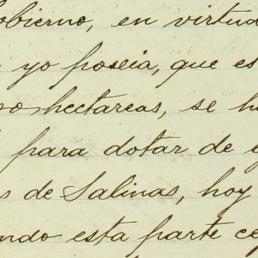 obierno, en virtud
yo poseia, que es
hectareas, se h
para dotar de e
s de Salinas, hoy
ndo esta parte ce